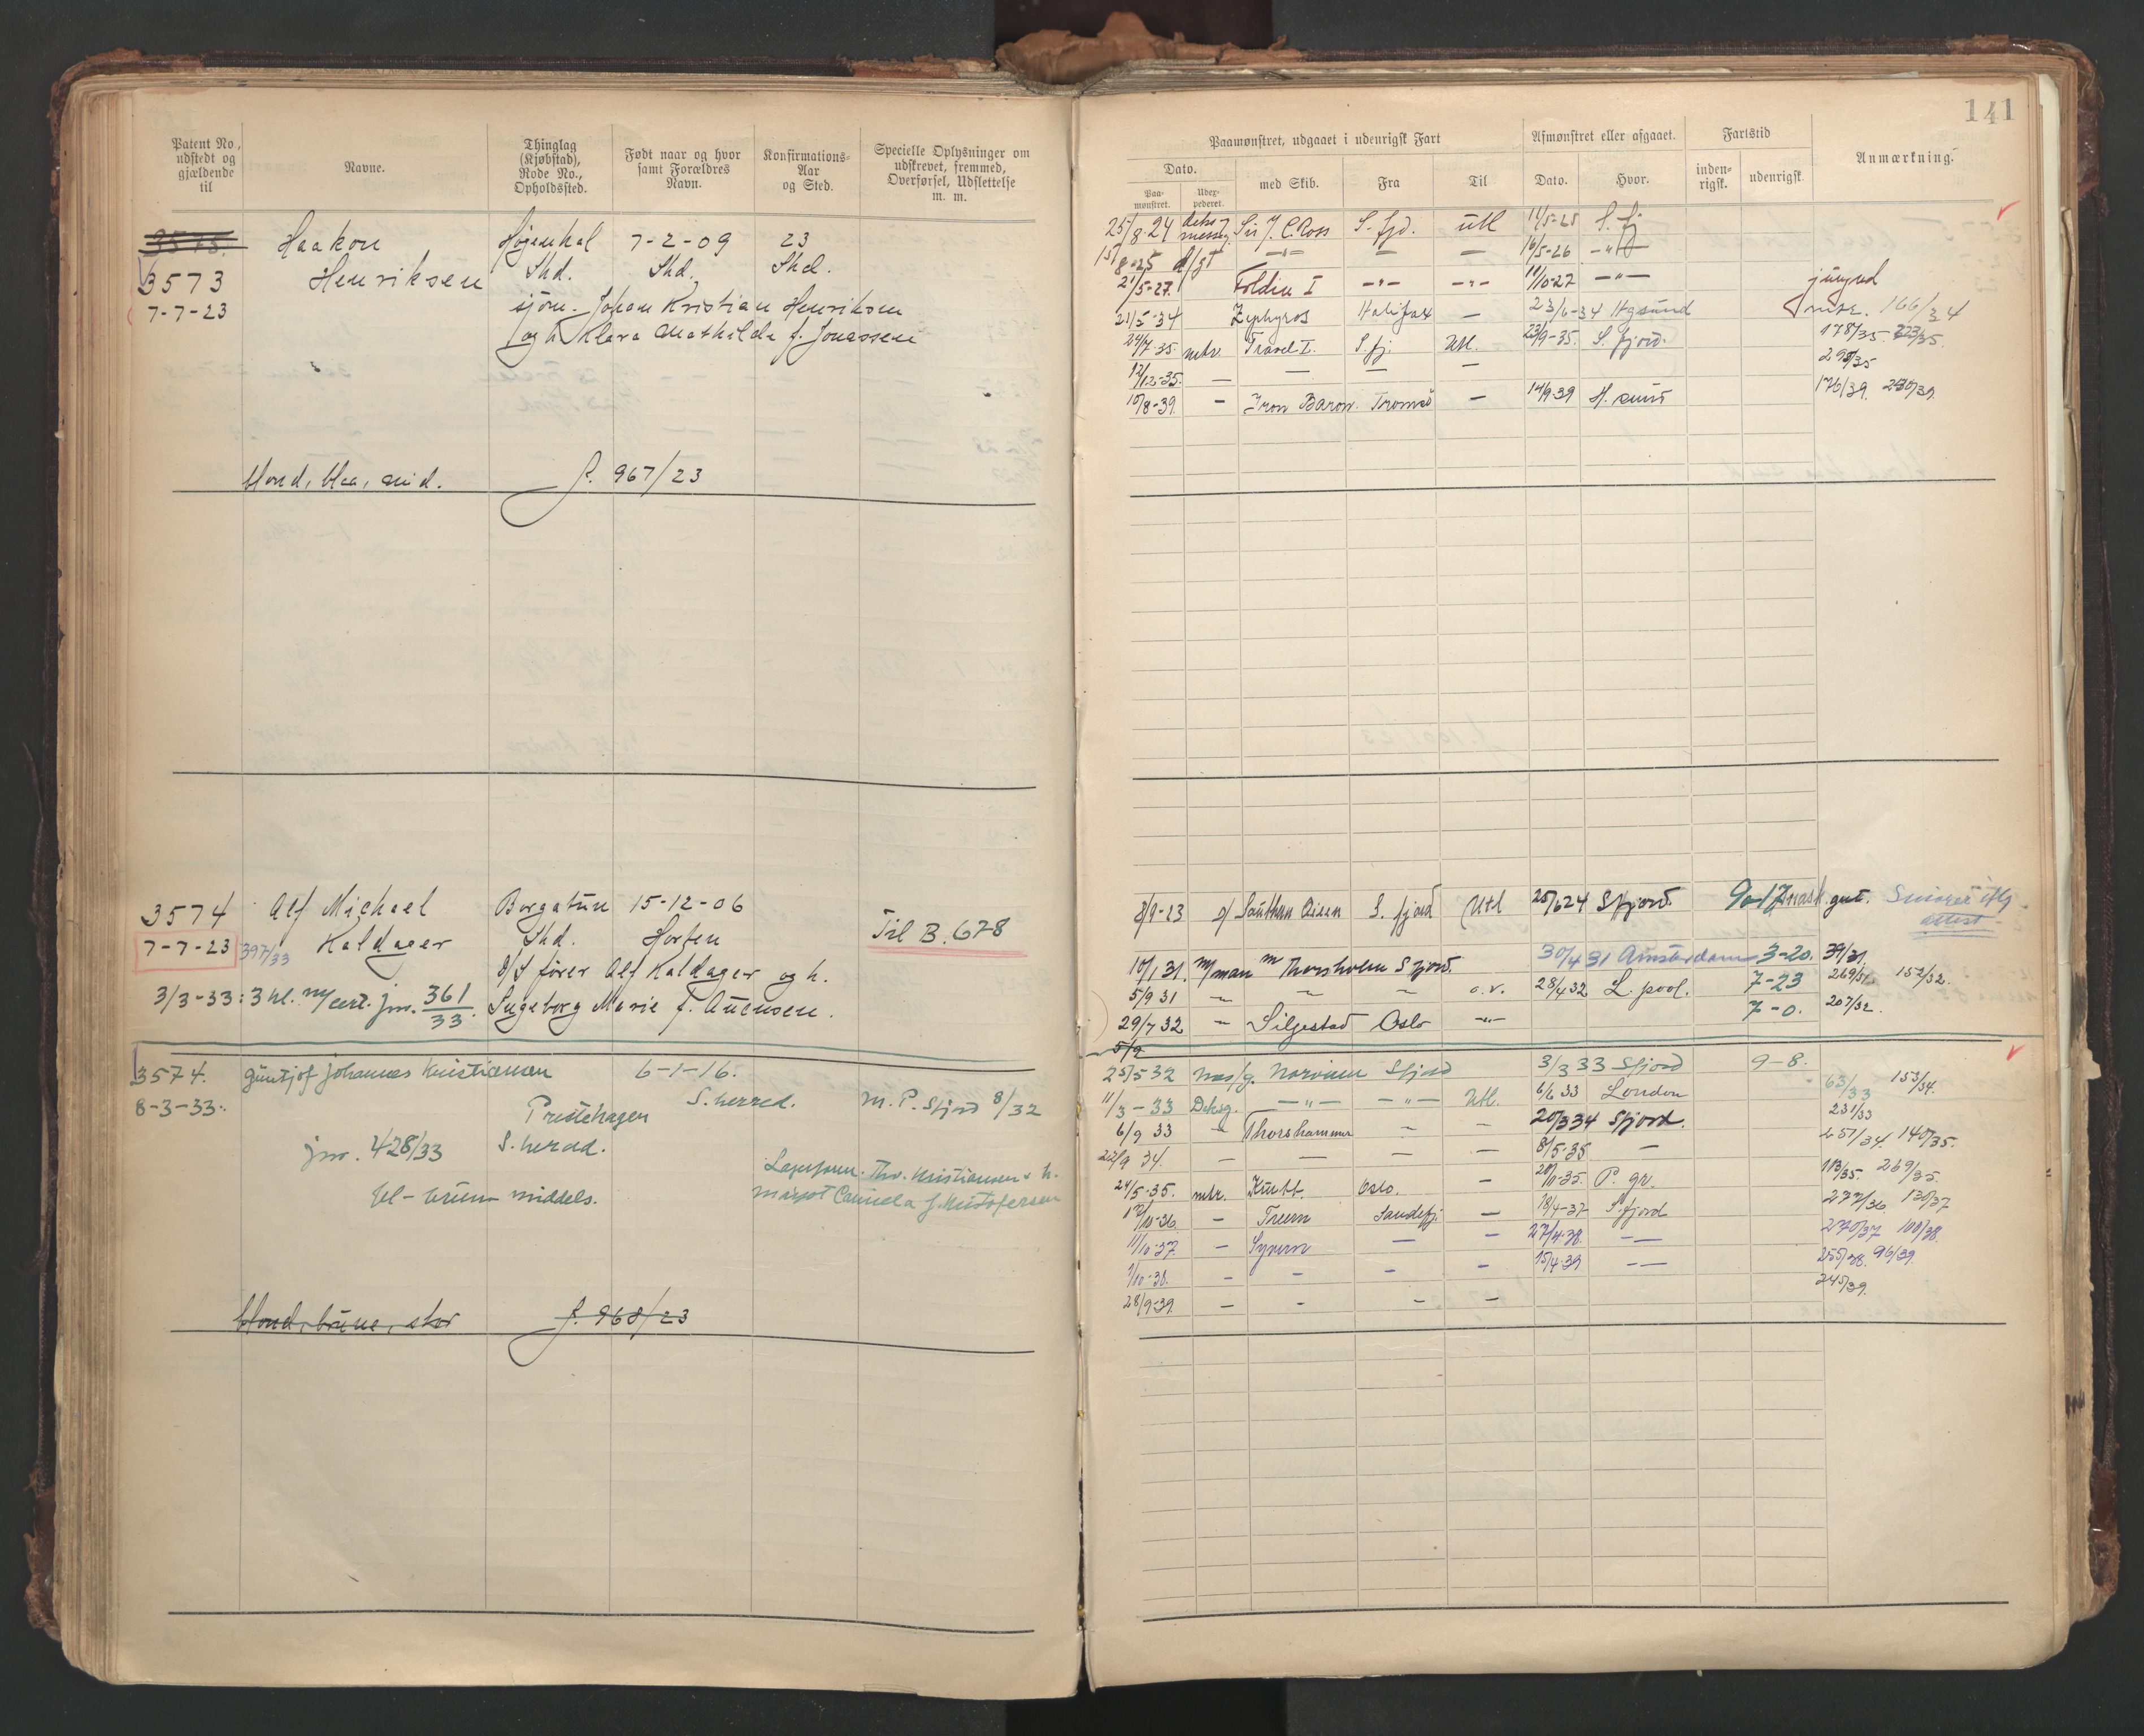 141
Patent No., udstedt og gjældende til
Navne.
Thinglag (Kjøbstad), Rode No., Opholdssted.
Født naar og hvor samt Forældres Navn.
Konfirmations-Aar og Sted.
Specielle Oplysninger om udskrevet, fremmed, Overførsel, Udslettelse m. m.
3575.
3573 Haakon Henriksen Shd. 7-2-09 Shd. 23 Shd.
7-7-23
sjöm. Johan Kristian Henriksen
og h. Klara Mathilde f. Jonassen
blond, blaa, mid. f. 967/23
3574 Alf Michael Borgatun 15-12-06
7-7-23 397/33 Kaldager Shd. Horten Til B. 678
D/S fører Alf Kaldager og h.
3/3-33: 3 kl. m/cert. jnr. 361/33 Ingeborg Marie f. Auensen.
3574. Johannes Kristiansen 6-1-16.
8-3-33. Prestehagen S. herred. M. P. Sfjord 8/32
jnr. 428/33 S. herad.
bl- brun middels. Thv. Kristiansen
blond, brune, stor f. 968/23
Paamønstret, udgaaet i udenrigsk Fart
Afmønstret eller afgaaet.
Fartstid
Anmærkning.
Dato.
Paa-mønstret.
Udex-pederet.
med Skib.
Fra
Til
Dato.
Hvor.
inden-rigsk.
udenrigsk.
25/8-24 Sir J. C. Ross S. fjd. utl 14/5-25 S. fj
15/8-25 d/gt -"- — — 16/5-26 -"-
21/5-27. Foldin I -"- -"- 11/10-27 -"- jungmd
21/5-34 Zephyros Halifax — 23/6-34 Hgsund mtr. 166/34
24/7-35 mtr. Travel I. S. fj. Utl. 23/9-35. S. fjord. 178/35. 223/35.
12/12-35. — — — — 298/35
10/8-39. — Iron Baron. Tromsö — 14/9-39 H. sund 176/39. 230/39.
8/9-23 Southern S. fjord Utl 25/6 24 Sfjord. gut. attest
10/1 31. m/man Thorsholm Sfjord. 30/4 31 Amsterdam 3-20. 39/31.
5/9 31 — — — o.v. 28/4 32 L. pool. 7-23 269/31 152/32.
29/7 32 — Siljestad Oslo -"- 7-0. 207/32.
5/9
25/5 32 Mes/g. Norvinn Sfjord 3/3 33 Sfjord 9-8.
11/3-33 Deksg. -"- -"- Utl. 6/6 33 London 63/33 153/34.
6/9 33 — Thorshammer — — 20/3 34 Sfjord. 231/33
22/9 34. — — — — 8/5-35 — 251/34. 140/35.
24/5-35. mtr. Knutt. Oslo. — 28/10-35. P. gr. 113/35. 269/35.
12/10-36 — Treern Sandefj. — 18/4-37 S. fjord 277/36 130/37
11/10-37. — Sydern — — 27/4-38. — 270/37 100/38.
1/10-38. — — — — 15/4-39 — 255/38. 96/39.
28/9-39. — — — — 245/39.